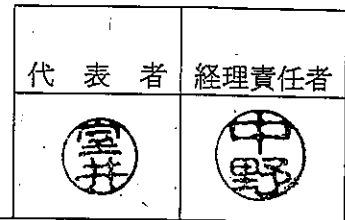 代表者 経理責任者
室井 中野